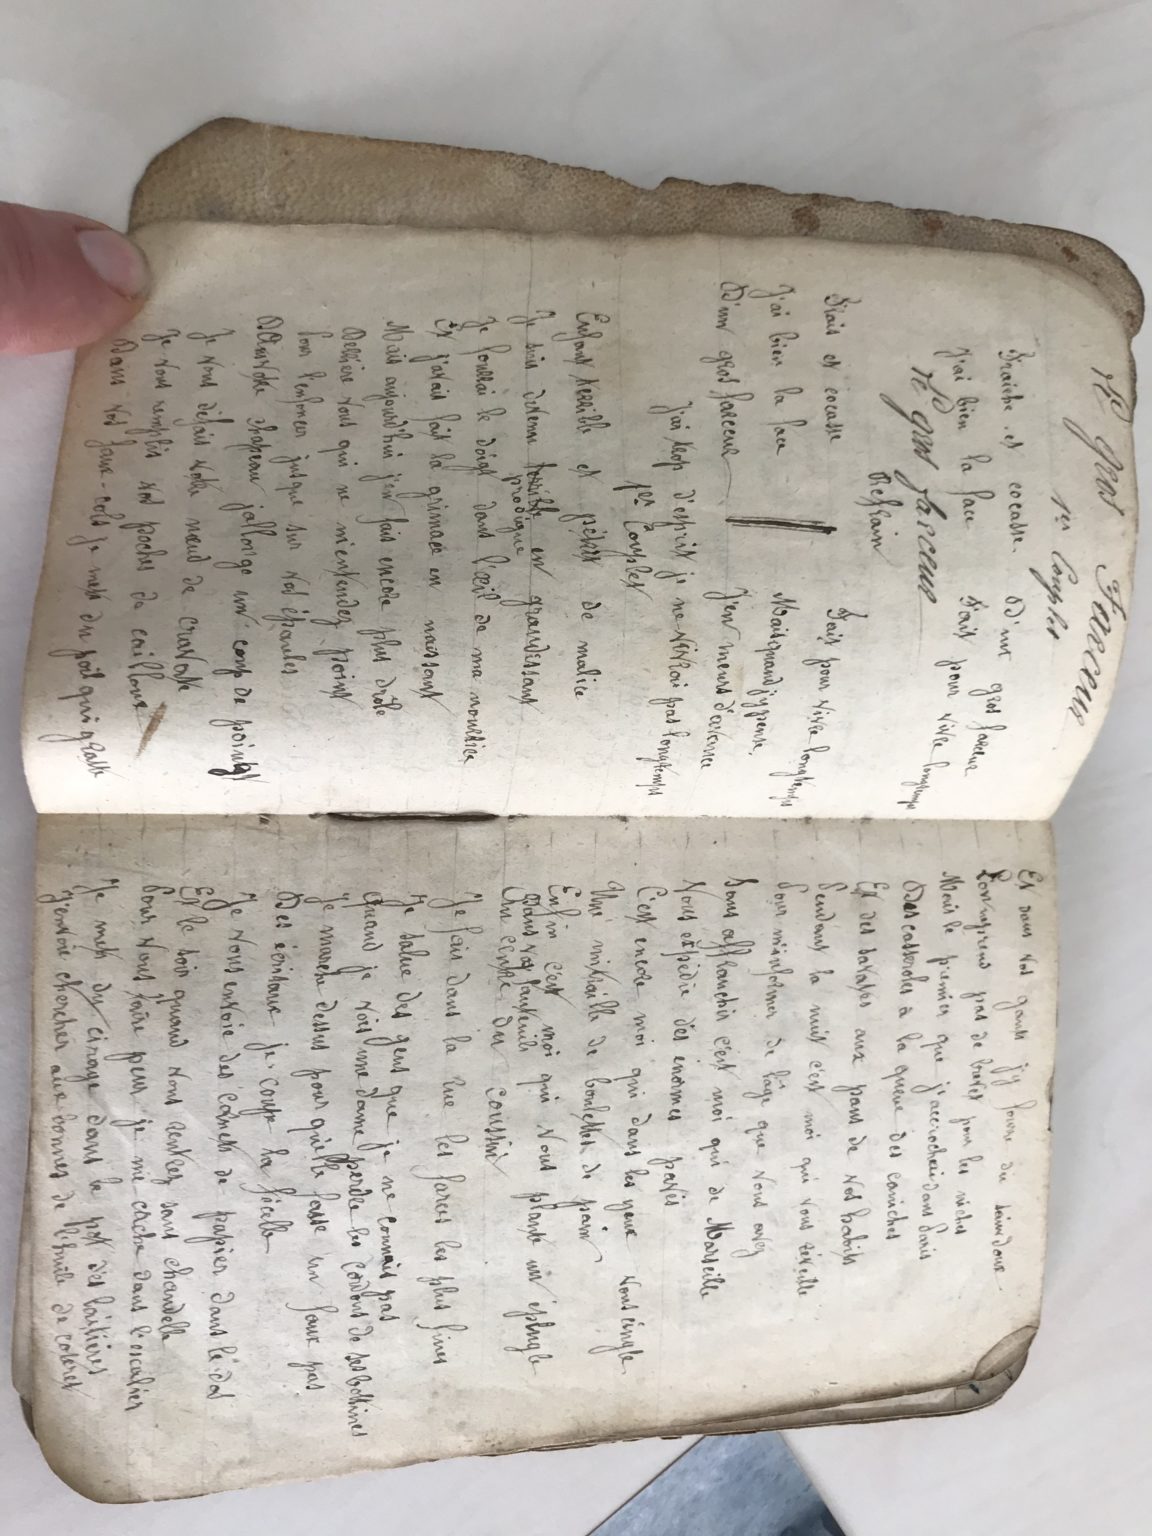 Le gros Farceur
1er Couplet
Fraiche et cocasse. D'un gros farceur
J'ai bien la face Fait pour vivre longtemps
Le gros farceur
Refrain
Frais et cocasse Fait pour vivre longtemps
J'ai bien la face Mais quand j'y pense,
D'un gros farceur J'en meurs d'avance
J'ai trop d'esprit je ne vivrai pas longtemps
1er Couplet
Enfant terrible et pétri de malice
Je suis devenu terrible en grandissant
prodigue
Je fourrai le doigt dans l'œil de ma nourrice
Et j'avais fait la grimace en naissant
Mais aujourd'hui j'en fais encore plus drôle
Derrière vous qui ne m'entendez point
Pour l'enfoncer jusque sur vos épaules
D'un votre chapeau j'allonge un coup de poing
Je vous défais votre nœud de cravate
Je vous remplis vos poches de cailloux
Dans vos faux-cols je mets du poil qui gratte
Et dans vos gants j'y fourre du saindoux
L'on prend pas de brevet pour les niches
Mais le premier que j'accrochai dans Paris
Des casseroles à la queue des caniches
Et des savates aux pans de vos habits
Pendant la nuit c'est moi qui vous réveille
Pour m'informer de l'âge que vous avez
Sans affranchir c'est moi qui de Marseille
Vous expédie des énormes pavés
C'est encore moi qui dans les yeux vous cingle
Une mitraille de boulettes de pain
Enfin c'est moi qui vous plante un épingle
Dans vos fauteuils
Au centre des coussin
Je fais dans la rue les farces les plus fines
Je salue des gens que je ne connais pas
Quand je vois une dame perdre les cordons de ses bottines
Je marche dessus pour qu'elle fasse un faux pas
Des écritaux je coupe la ficelle
Je vous envoie des cornets de papier dans le dos
Et le soir quand vous rentrez sans chandelle
Pour vous faire peur je me cache dans l'escalier
Je mets du cirage dans le pot des laitières
J'envoie chercher aux bonnes de l'huile de cotret